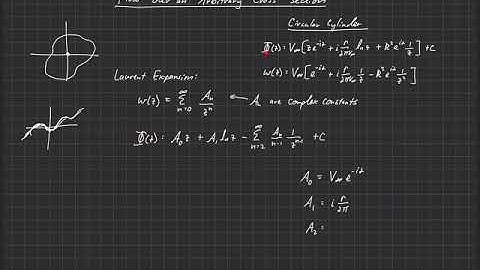 Flow Over an Arbitrary Cross Section
Circular Cylinder
Φ(z) = V∞[ze^-iα + i Γ/2πV∞ ln z + R²e^iα 1/z] + C
w(z) = V∞[e^-iα + i Γ/2πV∞ 1/z - R²e^iα 1/z²]
Laurent Expansion:
w(z) = ∞Σn=0 An/z^n ← An are complex constants
Φ(z) = A₀z + A₁ ln z - ∞Σn=2 An/n-1 1/z^n-1 + C
A₀ = V∞ e^-iα
A₁ = i Γ/2π
A₂ =